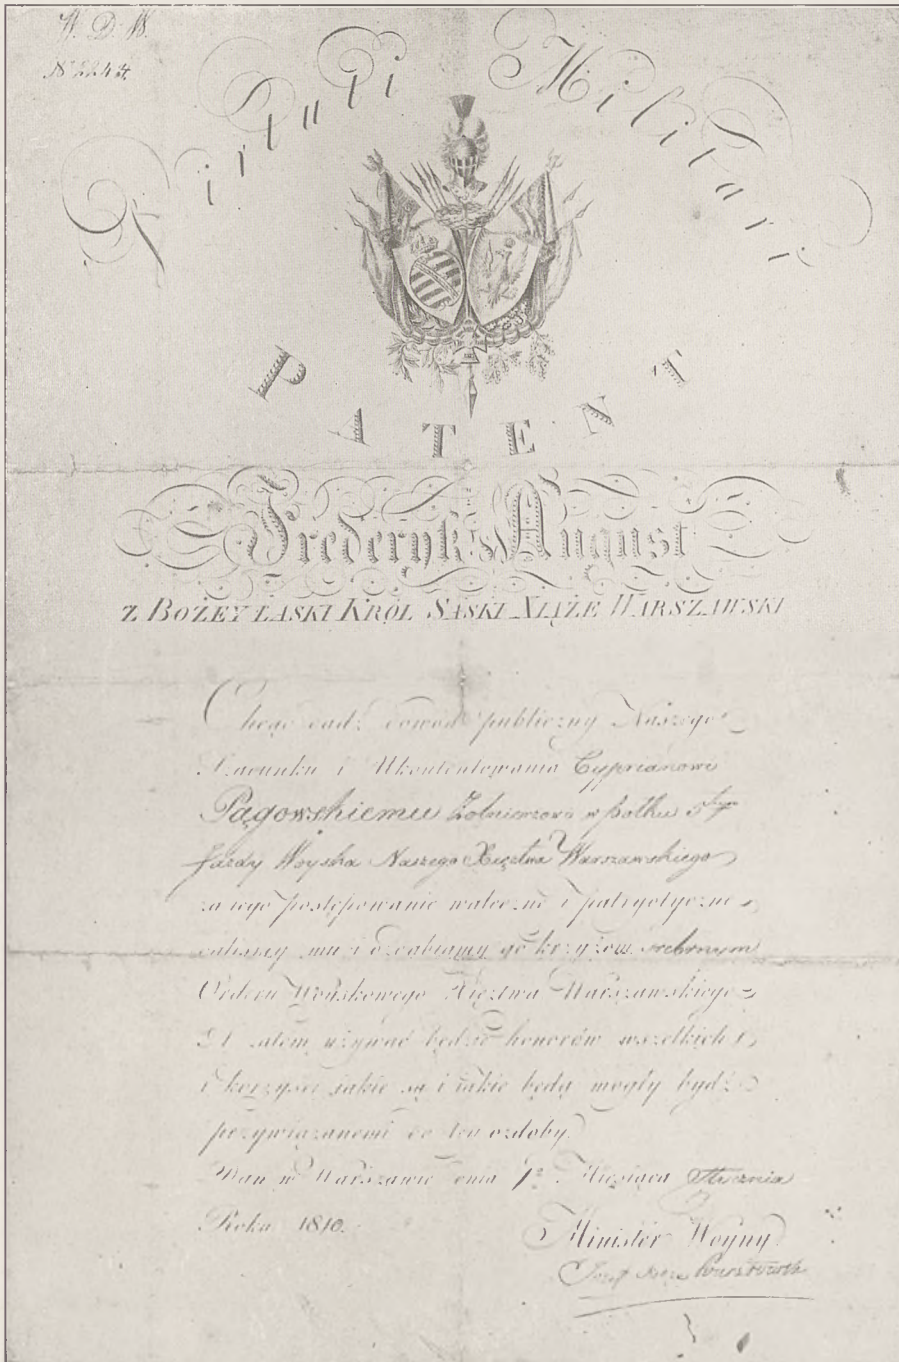 W. D. W.
Virtuti Militari
PATENT
Frederyk August
Z BOŻEY ŁASKI KRÓL SASKI XIĄŻE WARSZAWSKI
Chcąc dadź dowód publiczny Naszego
Szacunku i Ukontentowania Cyprianowi
Pągowskiemu Żołnierzowi w Półku 5tym
Jazdy Woyska Naszego Xięztwa Warszawskiego
za iego postępowanie waleczne i patryotyczne
mu i ozdabiamy go krzyżem srebrnym
Orderu Woyskowego Xięztwa Warszawskiego
A zatem używać będzie honorów wszelkich
i korzyści iakie są i iakie będą mogły bydź
przywiązanemi do tey ozdoby
Dan w Warszawie dnia 1º Miesiąca Stycznia
Roku 1810.
Minister Woyny
Józef Xiąże Poniatowski